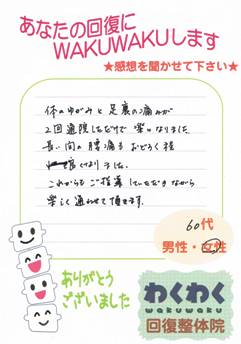 あなたの回復に
WAKUWAKUします
★感想を聞かせて下さい★
体のゆがみと足裏の痛みが
2回通院しただけで楽になりました
長い間の腰痛もおどろく程
なりました。
これからもご指導していただきながら
楽しく通わせて頂きます。
60代
男性・女性
ありがとう
ございました
わくわく
wakuwaku
回復整体院